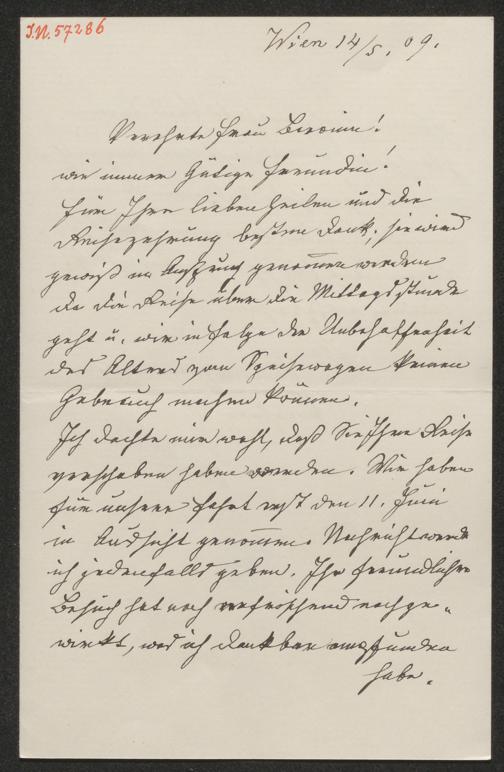 J.N. 57286
Wien 14/5. 09.
Verehrte Frau Baronin!
wie immer gütige Freundin!
Für Ihre lieben Zeilen und die
Reisezehrung besten Dank, sie wird
gewiß in Anspruch genommen werden
da die Reise über die Mittagsstunde
geht u. wir in Folge der Unbeholfenheit
des Alters vom Speisewagen keinen
Gebrauch machen können.
Ich dachte mir wohl, daß Sie Ihre Reise
verschoben haben werden. Wir haben
für unsere Fahrt erst den 11. Juni
in Aussicht genommen. Nachricht werde
ich jedenfalls geben. Ihr freundlicher
Besuch hat noch erfrischend nachge-
wirkt, was ich dankbar empfunden
habe.